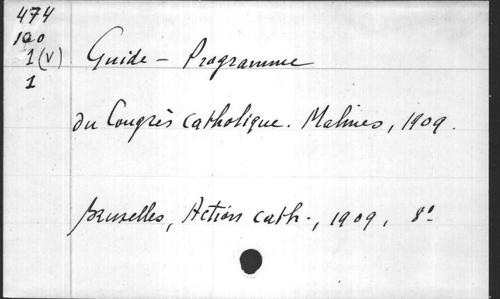 474
100
1(V)
1
Guide - Programme
du Congrès catholique. Malines, 1909.
Bruxelles, Action cath., 1909, 8°